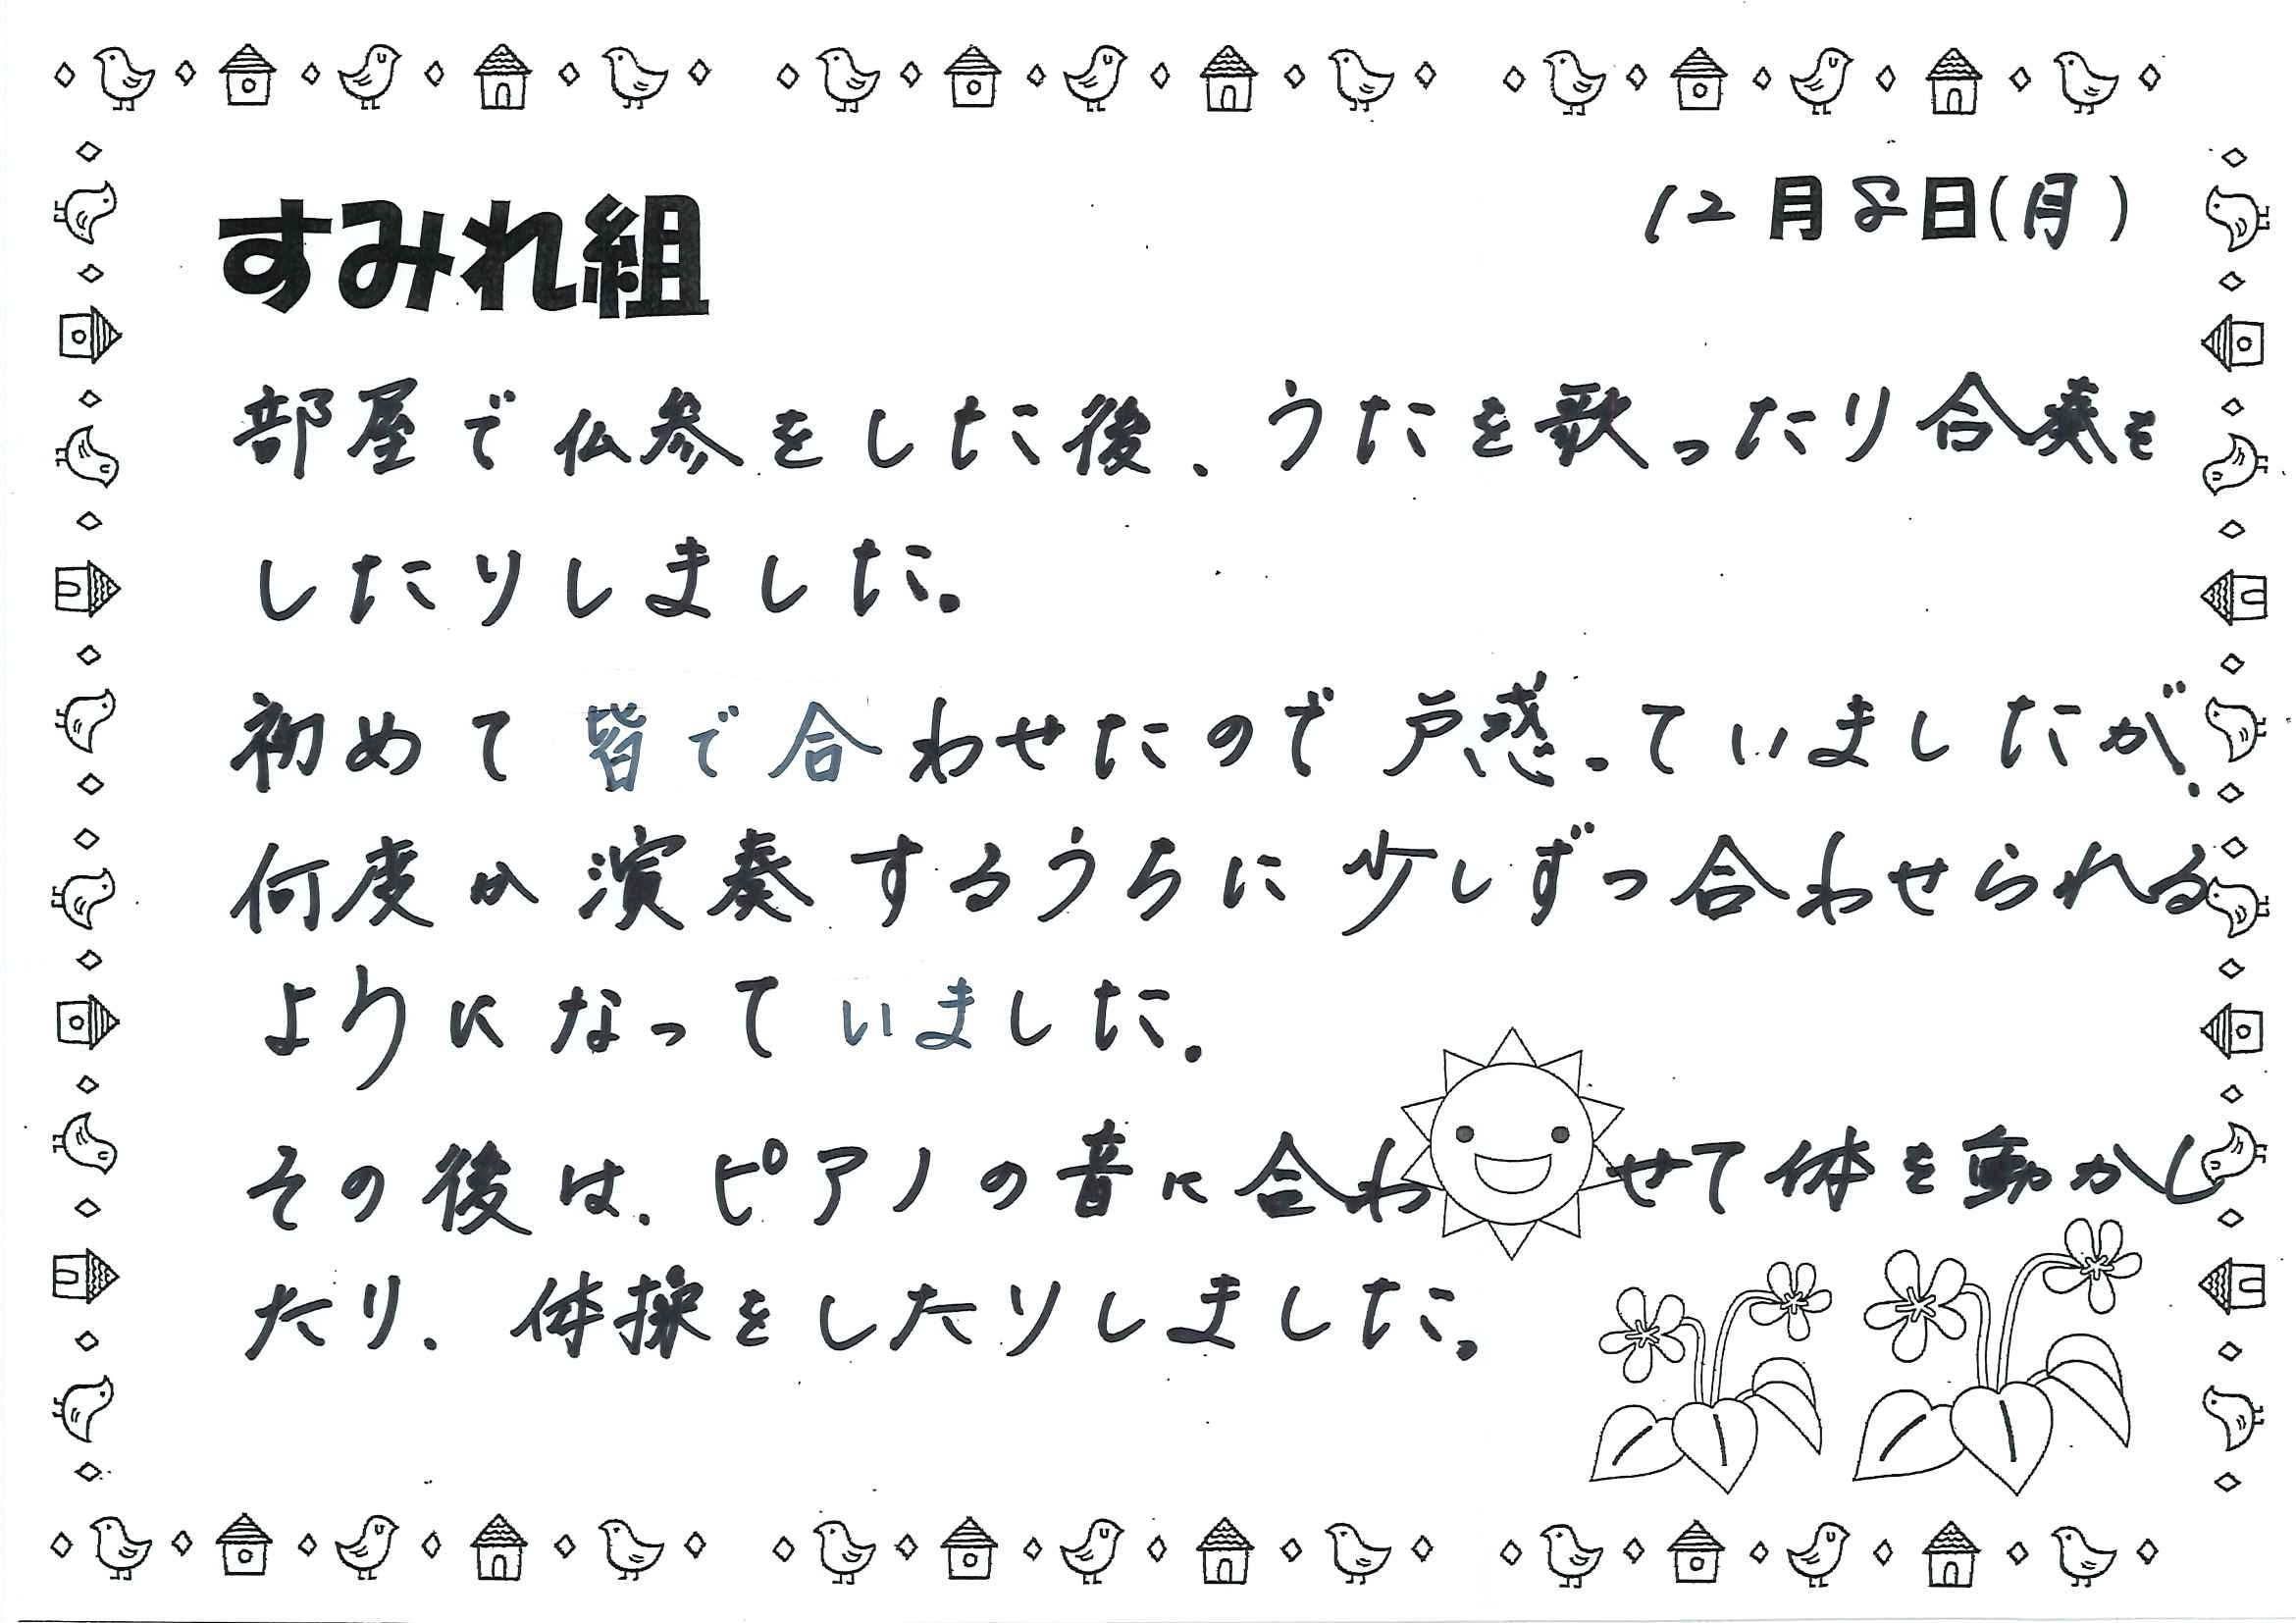 すみれ組
12月8日(月)
部屋で仏参をした後、うたを歌ったり合奏を
したりしました。
初めて皆で合わせたので戸惑っていましたが、
何度か演奏するうちに少しずつ合わせられる
ようになっていました。
その後は、ピアノの音に合わせて体を動かし
たり、体操をしたりしました。